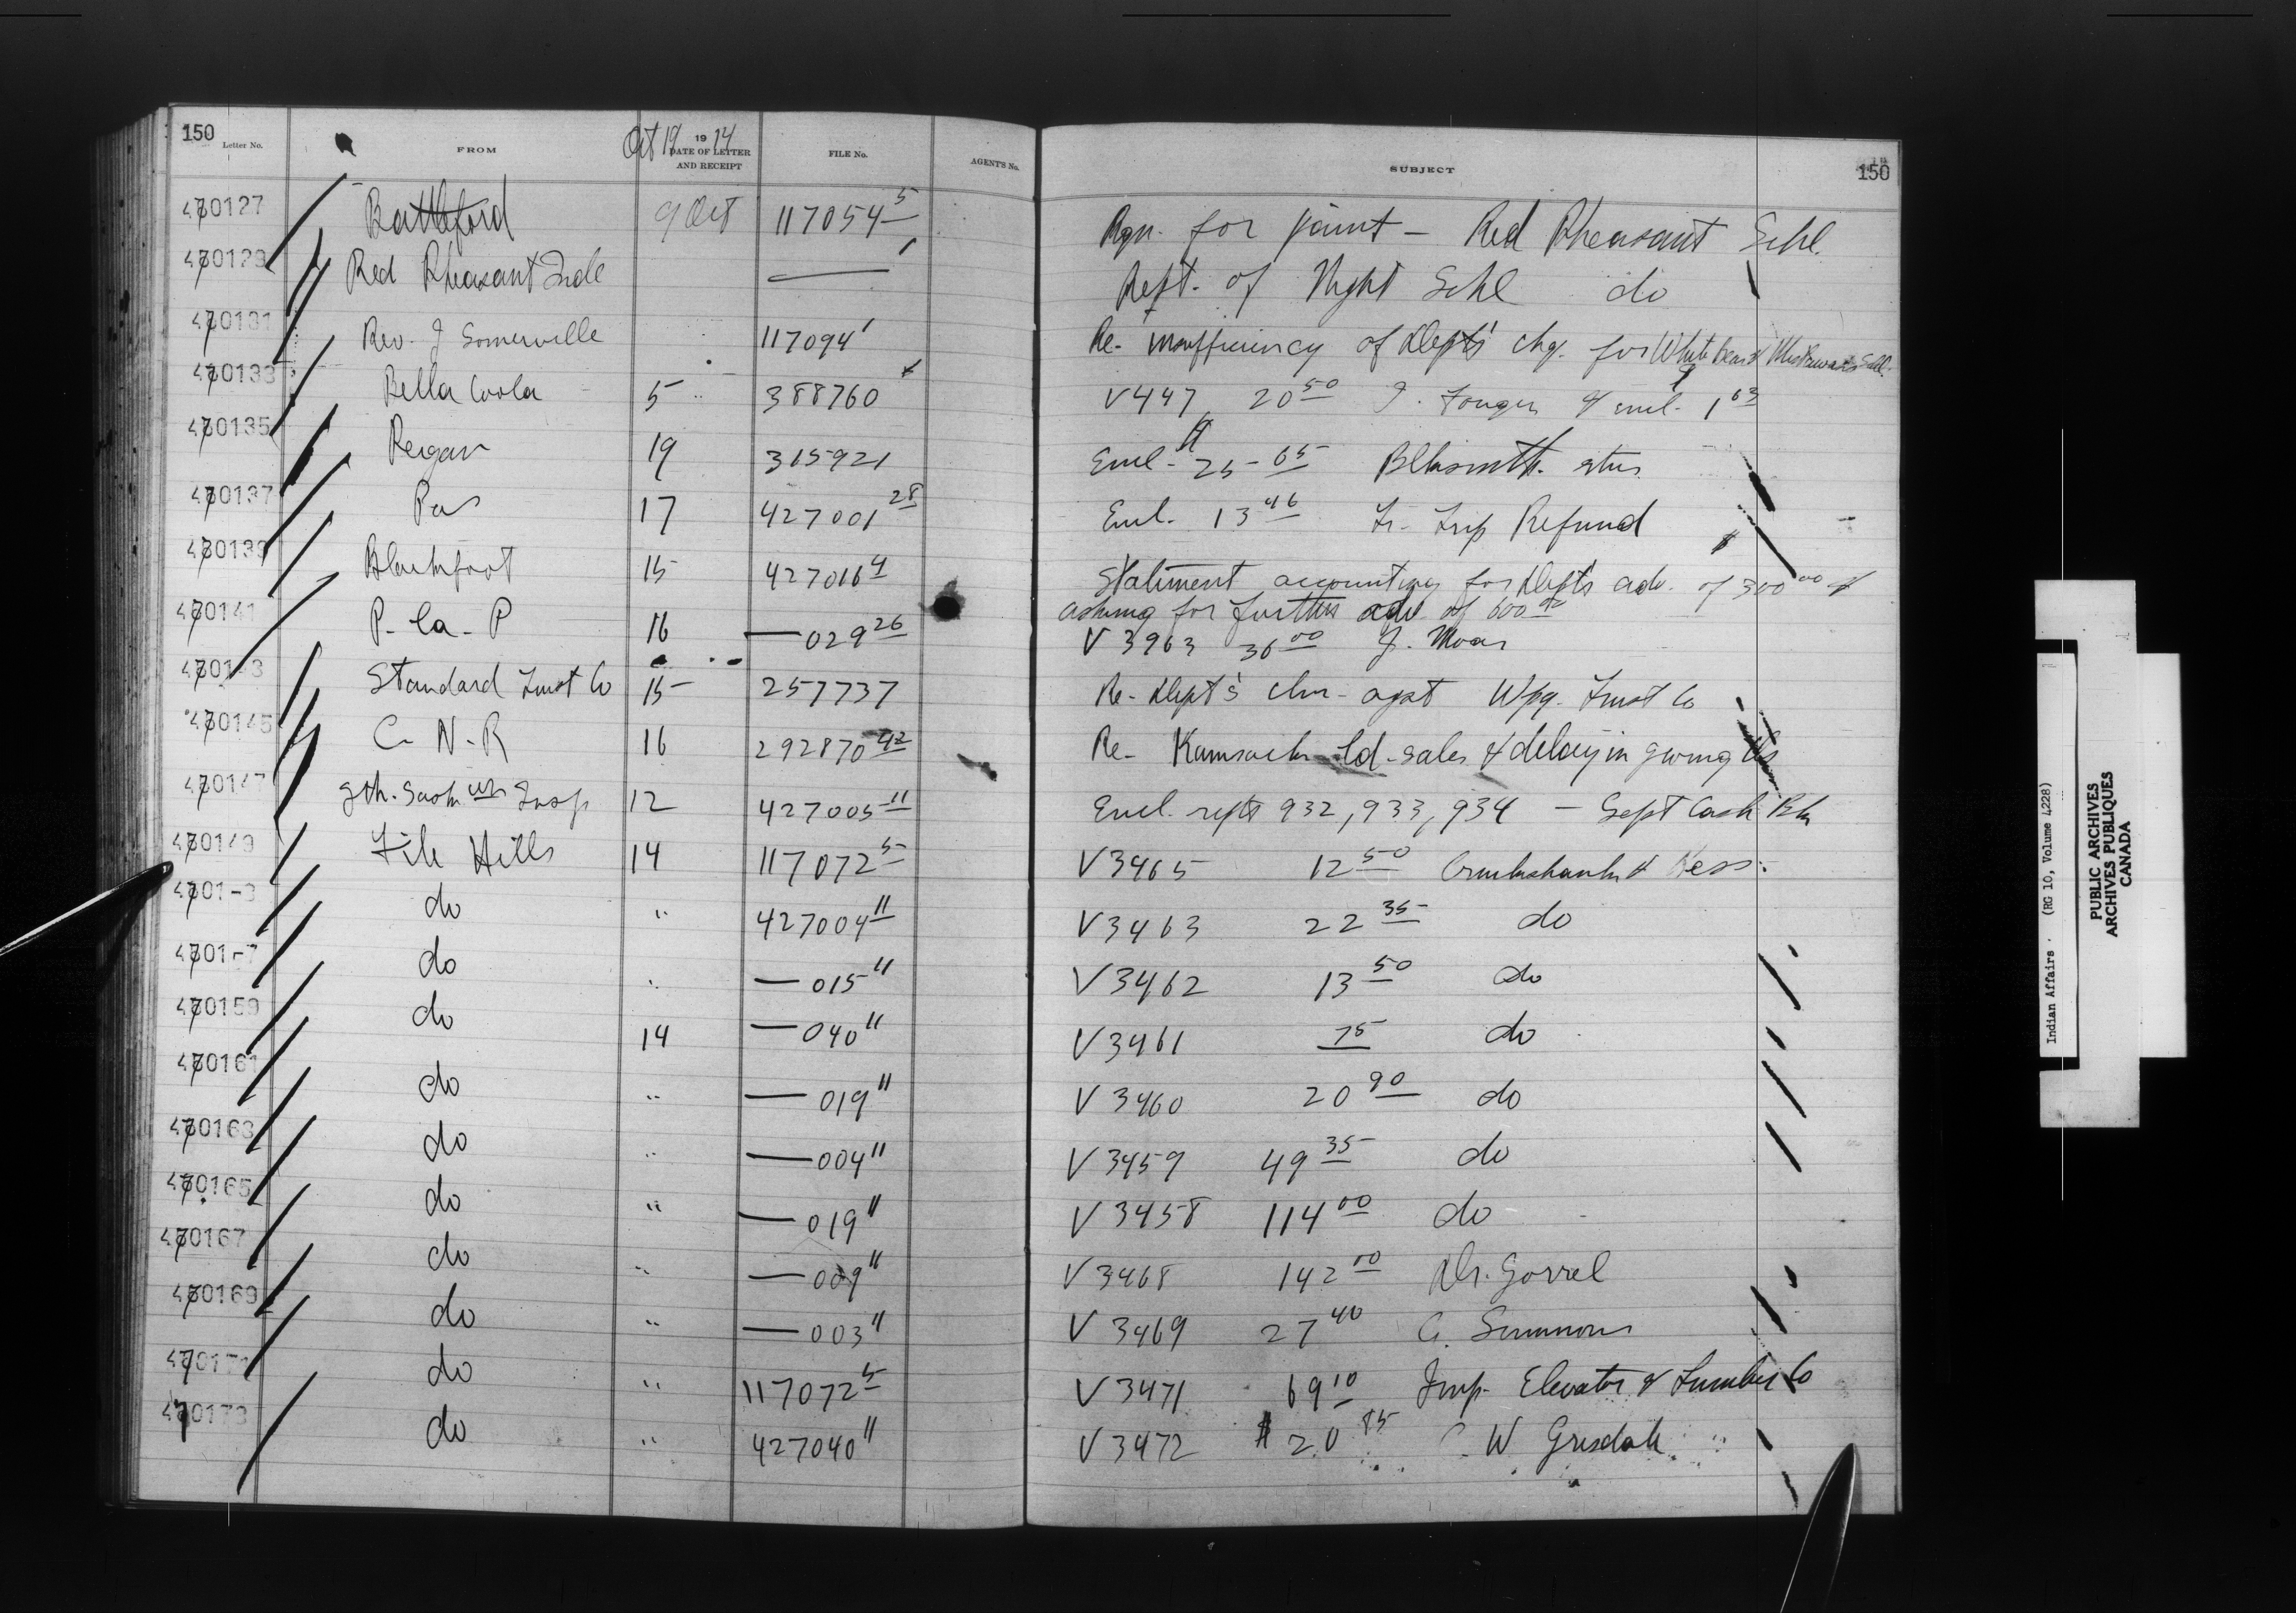 150
Letter No. FROM Oct 19 1914 DATE OF LETTER AND RECEIPT FILE No. AGENT'S No. SUBJECT 150
470127 Battleford 9 Oct 117054 5 Rqn. for paint - Red Pheasant Schl.
470129 Red Pheasant Inds — 1 Rept. of Night Schl do
470131 Rev. J Somerville 117094 1 Re- insufficiency of Dept's chq. for White Bear &
470133 Bella Coola 5 388760 V447 20 50 J. & encl. 1 63
470135 Peigan 19 315921 Encl. 25-65 Blksmith.
470137 Pas 17 427001 28 Encl. 13 46 Tr. Trip Refund
470139 Blackfoot 15 427016 4 Statement accounting for Dept's adv. of 300 00 &
asking for further adv of 600 00
470141 P- la- P 16 — 029 26 V 3963 36 00 J. Moar
Standard Trust Co 15 257737 Re- Dept's clm- agst Wpg. Trust Co
470145 C- N- R 16 292870 42 Re- Kamsack Ld. sales & delay in giving
470147 Sth. Sask Insp 12 427005 11 Encl. repts 932, 933, 934 — Sept Cash Bk
470149 File Hills 14 117072 5 V 3465 12 50 Cruikshank & Ness
do " 427004 11 V 3463 22 35 do
do " — 015 11 V 3462 13 50 do
470159 do 14 — 040 11 V 3461 75 do
470161 do " — 019 11 V 3460 20 90 do
470163 do " — 004 11 V 3459 49 35 do
470165 do " — 019 11 V 3458 114 00 do
470167 do " — 009 11 V 3468 142 00 Dr. Gorrel
470169 do " — 003 11 V 3469 27 40 Simmons
470171 do " 117072 5 V 3471 69 10 Imp- Elevator & Lumber Co
470173 do " 427040 11 V 3472 $ 20 85 W Grisdale
Indian Affairs. (RG 10, Volume 4228)
PUBLIC ARCHIVES
ARCHIVES PUBLIQUES
CANADA